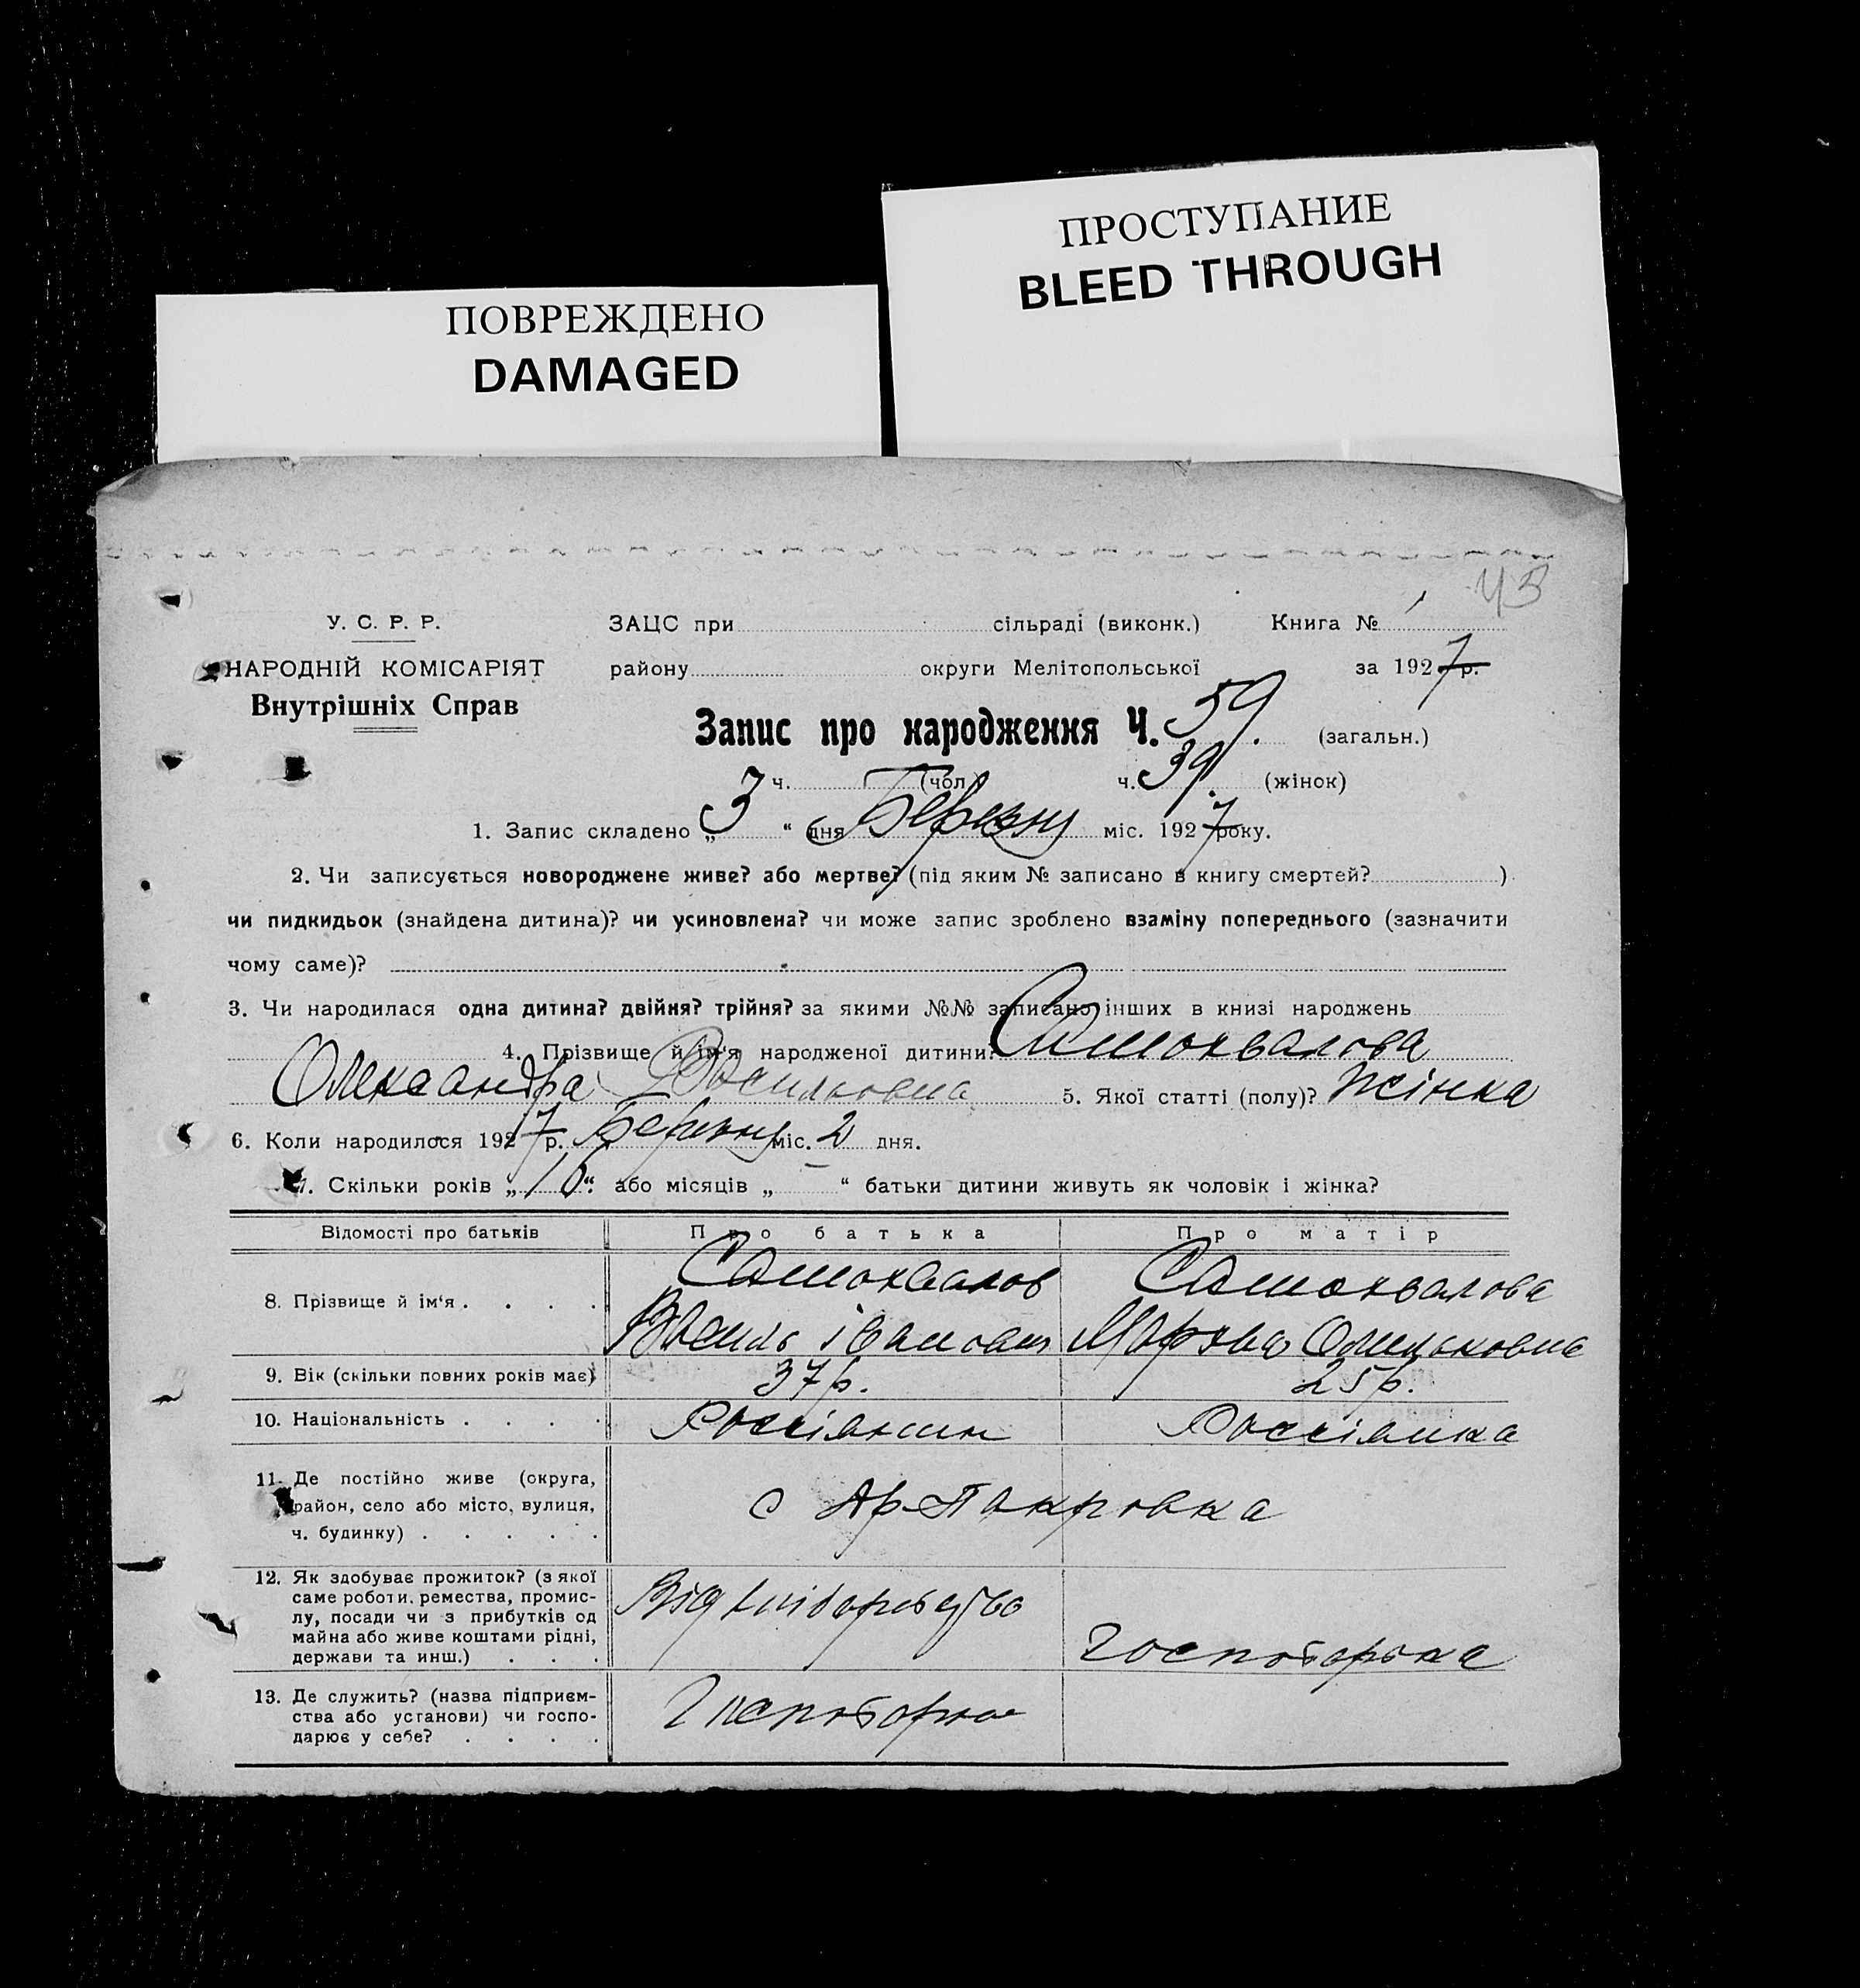 ПРОСТУПАНИЕ
BLEED THROUGH
ПОВРЕЖДЕНО
DAMAGED
43
У. С. Р. Р. ЗАЦС при сільраді (виконк.) Книга № 1
НАРОДНІЙ КОМІСАРІЯТ району округи Мелітопольської за 1927 р.
Внутрішніх Справ
Запис про народження Ч. 59. (загальн.)
ч. (чол.) ч. 39. (жінок)
1. Запис складено „3“ дня Березня міс. 1927 року.
2. Чи записується новороджене живе? або мертве? (під яким № записано в книгу смертей? )
чи пидкидьок (знайдена дитина)? чи усиновлена? чи може запис зроблено взаміну попереднього (зазначити
чому саме)?
3. Чи народилася одна дитина? двійня? трійня? за якими №№ записано інших в книзі народжень
4. Прізвище й ім'я народженої дитини? Самохвалова
Олександра Васильовна 5. Якої статті (полу)? Жінка
6. Коли народилося 1927 р. Березня міс. 2 дня.
7. Скільки років „10“ або місяців „ “ батьки дитини живуть як чоловік і жінка?
Відомості про батьків Про батька Про матір
8. Прізвище й ім'я . . . . Самохвалов Самохвалова
Василь Іванович Марфа
9. Вік (скільки повних років має) 37 р. 25 р.
10. Національність . . . . Россіянин Россіянка
11. Де постійно живе (округа,
район, село або місто, вулиця, с Ар-Покровка
ч. будинку) . . . . .
12. Як здобуває прожиток? (з якої
саме роботи, ремества, промис- Від
лу, посади чи з прибутків од
майна або живе коштами рідні,
держави та инш.) . . . Господарька
13. Де служить? (назва підприєм-
ства або установи) чи госпо-
дарює у себе? . . . .